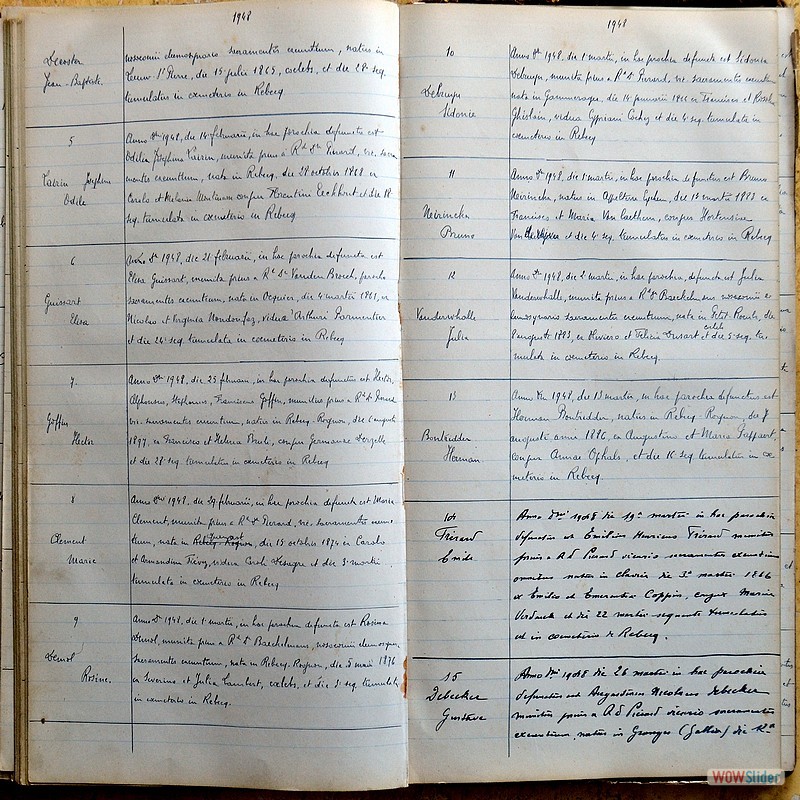 1948
Deaster
Jean-Baptiste
nosocomii eleemosynario sacramentis exeuntium, natus in
Leeuw St Pierre, die 15 julii 1865, coelebs, et die 28a seq.
tumulatus in coemeterio in Rebecq
5
Vairin Josephina
Odile
Anno Dni 1948, die 14 februarii, in hac parochia defuncta est
Odilia Josephina Vairin, munita prius a Rdo Dno Pierard, vic. sacra-
mentis exeuntium, nata in Rebecq, die 29 octobris 1868 ex
Carolo et Melania conjux Florentini Eeckhout et die 18
seq. tumulata in coemeterio in Rebecq
6
Guissart
Elisa
Anno Dni 1948, die 21 februarii, in hac parochia defuncta est
Elisa Guissart, munita prius a Rdo Dno Vanden Bosch, parocho
sacramentis exeuntium, nata in Ocquier, die 4 martii 1861, ex
Nicolao et Virginia vidua Arthuri Parmentier
et die 24a seq. tumulata in coemeterio in Rebecq
7.
Goffin
Hector
Anno Dni 1948, die 25 februarii, in hac parochia defunctus est Hector,
Alphonsus, Stephanus, Franciscus Goffin, munitus prius a Rdo D Pierard
vic. sacramentis exeuntium, natus in Rebecq-Rognon, die 6 augusti
1897, ex Francisco et Helena conjux Germanae
et die 28a seq. tumulatus in coemeterio in Rebecq
8
Clement
Marie
Anno Dni 1948, die 29 februarii, in hac parochia defuncta est Maria
Clement, munita prius a Rdo D Pierard, vic. sacramentis exeun-
tium, nata in Rebecq-Rognon, die 15 octobris 1874 ex Carolo
et Amandina vidua Caroli et die 3a martii
tumulata in coemeterio in Rebecq
9
Demol
Rosine.
Anno Dni 1948, die 1a martii, in hac parochia defuncta est Rosina
Demol, munita prius a Rdo D Baeckelmans, nosocomii eleemosyn.
sacramentis exeuntium, nata in Rebecq-Rognon, die 5 maii 1876
ex Severino et Julia Lambert, coelebs, et die 3a seq. tumulata
in coemeterio in Rebecq.
1948
10
Debruyn
Sidonie
Anno Dni 1948, die 1a martii, in hac parochia defuncta est Sidonia
Debruyn, munita prius a Rdo D Pierard, vic. sacramentis exeuntium
nata in Gammerages, die 14 januarii 1866 ex Francisco et Rosalia
Ghislain, vidua Cypriani et die 4 seq. tumulata in
coemeterio in Rebecq
11
Neirinckx
Bruno
Anno Dni 1948, die 1a martii, in hac parochia defunctus est Bruno
Neirinckx, natus in Appelterre Eychem, die 1a martii 1883 ex
Francisco et Maria Van Caethem, conjux Hortensiae
et die 4 seq. tumulatus in coemeterio in Rebecq
12
Vanderwhalle
Julia
Anno Dni 1948, die 2 martii, in hac parochia, defuncta est Julia
Vanderwhalle, munita prius a Rdo D Baeckelm nosocomii e-
leemosynario sacramentis exeuntium, nata in Petit-Roeulx, die
augusti 1883, ex et Felicia Dusart coelebs et die 5a seq. tu-
mulata in coemeterio in Rebecq.
13
Bontridder
Herman
Anno Dni 1948, die 13 martii, in hac parochia defunctus est
Herman Bontridder, natus in Rebecq-Rognon, die 7
augusti anni 1886, ex Augustino et Maria
conjux Annae Ophals, et die 16 seq. tumulatus in coe-
meterio in Rebecq.
14
Trérard
Emile
Anno Dni 1948 die 19a martii in hac parochia
defunctus est Emilius Henricus Trérard munitus
prius a Rd Pierard vicario sacramentis exeuntium
omnibus natus in Clavier die 3a martii 1866
ex Emilio et Emerentia Coppin, conjux Mariae
et die 22 martii sequente tumulatus
est in coemeterio de Rebecq.
15
Debecker
Gustave
Anno Dni 1948 die 26 martii in hac parochia
defunctus est Augustinus Nicolaus Debecker
munitus prius a Rd Pierard vicario sacramentis
exeuntium natus in (Gallia) die 12a
WOWSlider